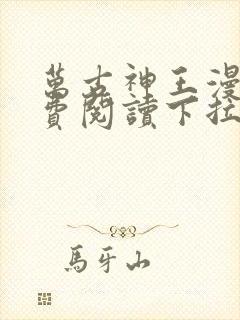 萬古神王漫
費閱讀下拉
馬牙山